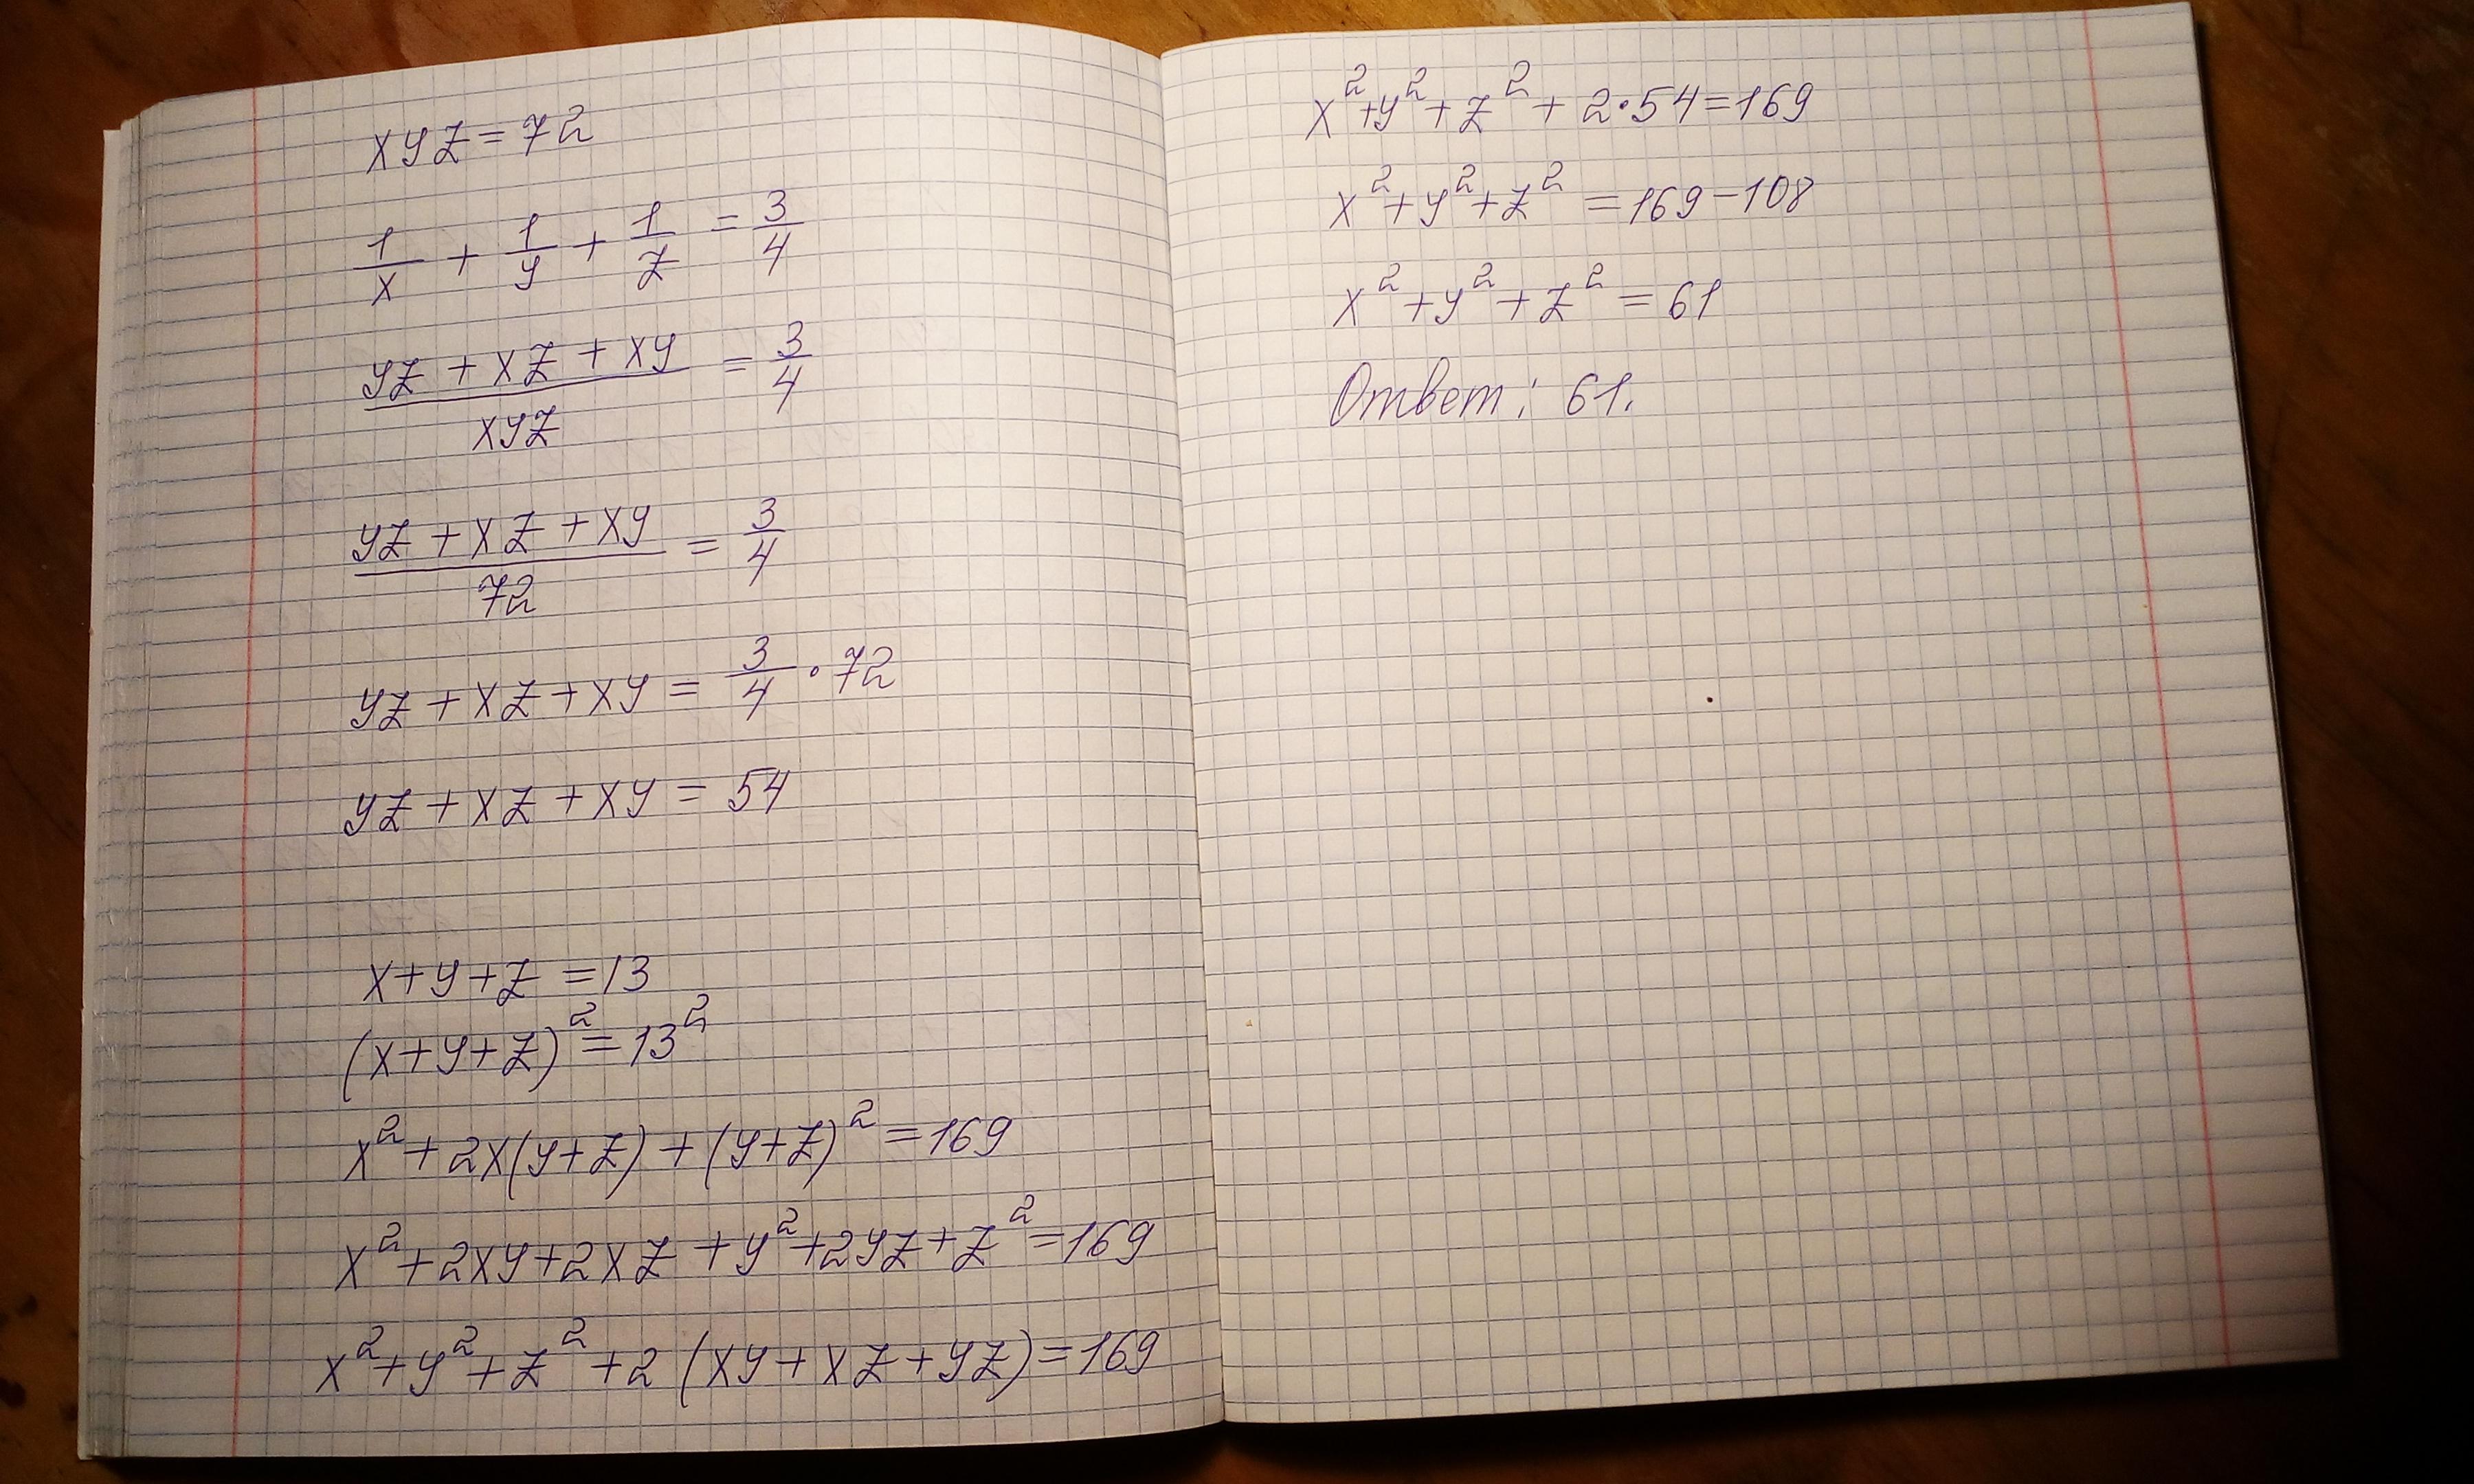 xyz = 72
1/x + 1/y + 1/z = 3/4
(yz + xz + xy)/xyz = 3/4
(yz + xz + xy)/72 = 3/4
yz + xz + xy = 3/4 · 72
yz + xz + xy = 54
x+y+z = 13
(x+y+z)² = 13²
x² + 2x(y+z) + (y+z)² = 169
x² + 2xy + 2xz + y² + 2yz + z² = 169
x² + y² + z² + 2 (xy + xz + yz) = 169
x² + y² + z² + 2·54 = 169
x² + y² + z² = 169 - 108
x² + y² + z² = 61
Ответ: 61.